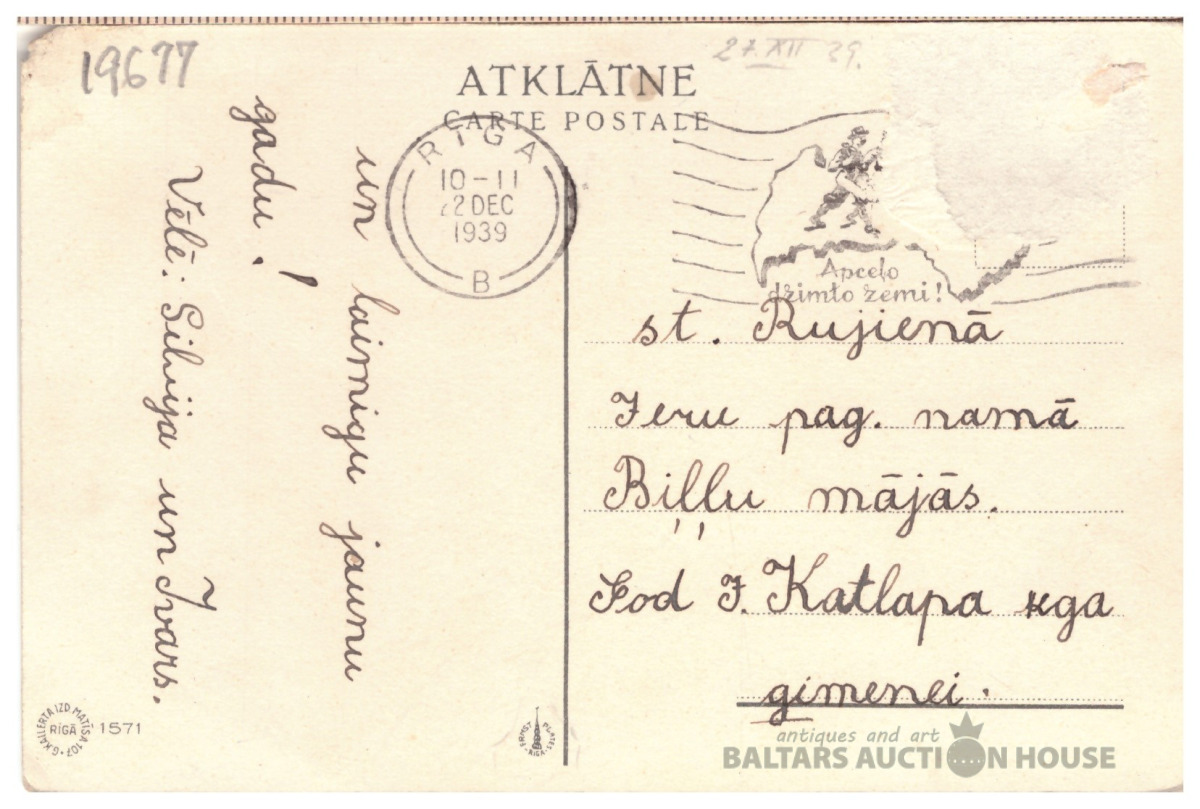 19677
27.XII 39.
ATKLĀTNE
CARTE POSTALE
RĪGA
10-11
22 DEC
1939
B
Apceļo
dzimto zemi!
un laimigu jaunu
gadu!
Vēlē: Silvija un Ivars.
st. Rujienā
Jeru pag. namā
Biļļu mājās.
God J. Katlapa kga
ģimenei.
G. KALLERTA IZD. MATĪSA 107
RĪGĀ
1571
ERNST PLATES
RĪGA
antiques and art
BALTARS AUCTION HOUSE